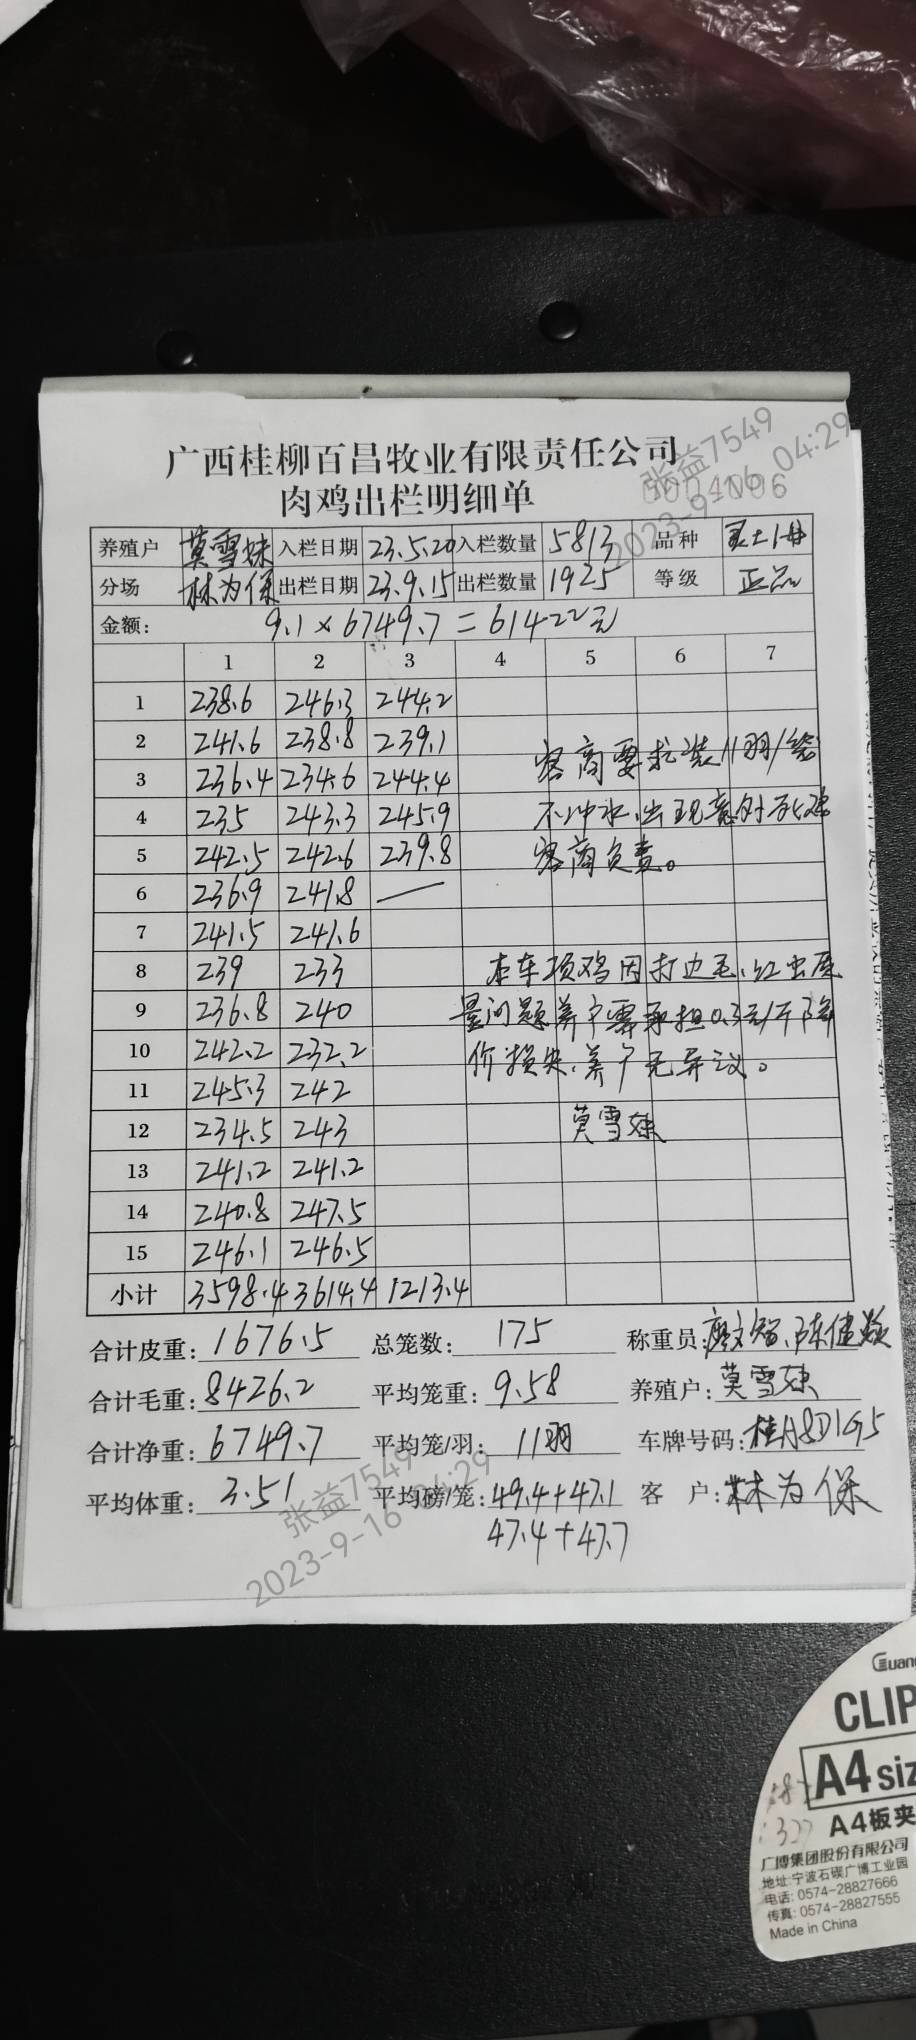 广西桂柳百昌牧业有限责任公司
肉鸡出栏明细单
张益7549
2023-9-16 04:29
养殖户 莫雪妹 入栏日期 23.5.20 入栏数量 5813 品种
分场 林为保 出栏日期 23.9.15 出栏数量 1925 等级 正品
金额: 9.1×6749.7=61422元
1 2 3 4 5 6 7
1 238.6 246.3 244.2
2 241.6 238.8 239.1
3 236.4 234.6 244.4
4 235 243.3 245.9
5 242.5 242.6 239.8
6 236.9 241.8 —
7 241.5 241.6
8 239 233
9 236.8 240
10 242.2 232.2
11 245.3 242
12 234.5 243
13 241.2 241.2
14 240.8 247.5
15 246.1 246.5
小计 3598.4 3614.4 1213.4
客商要求装11羽/笼
不冲水,出现意外死鸡
客商负责。
本车项鸡因打边毛、红出质
量问题养户需承担0.3元/斤降
价损失,养户无异议。
莫雪妹
合计皮重: 1676.5 总笼数: 175 称重员:
合计毛重: 8426.2 平均笼重: 9.58 养殖户: 莫雪妹
合计净重: 6749.7 平均笼/羽: 11羽 车牌号码: 桂A8D1G5
平均体重: 3.51 平均磅/笼: 49.4+47.1 客 户: 林为保
47.4+47.7
张益7549
2023-9-16 04:29
Guang
CLIP
A4 siz
A4板夹
广博集团股份有限公司
地址:宁波石碶广博工业园
电话: 0574-28827666
传真: 0574-28827555
Made in China